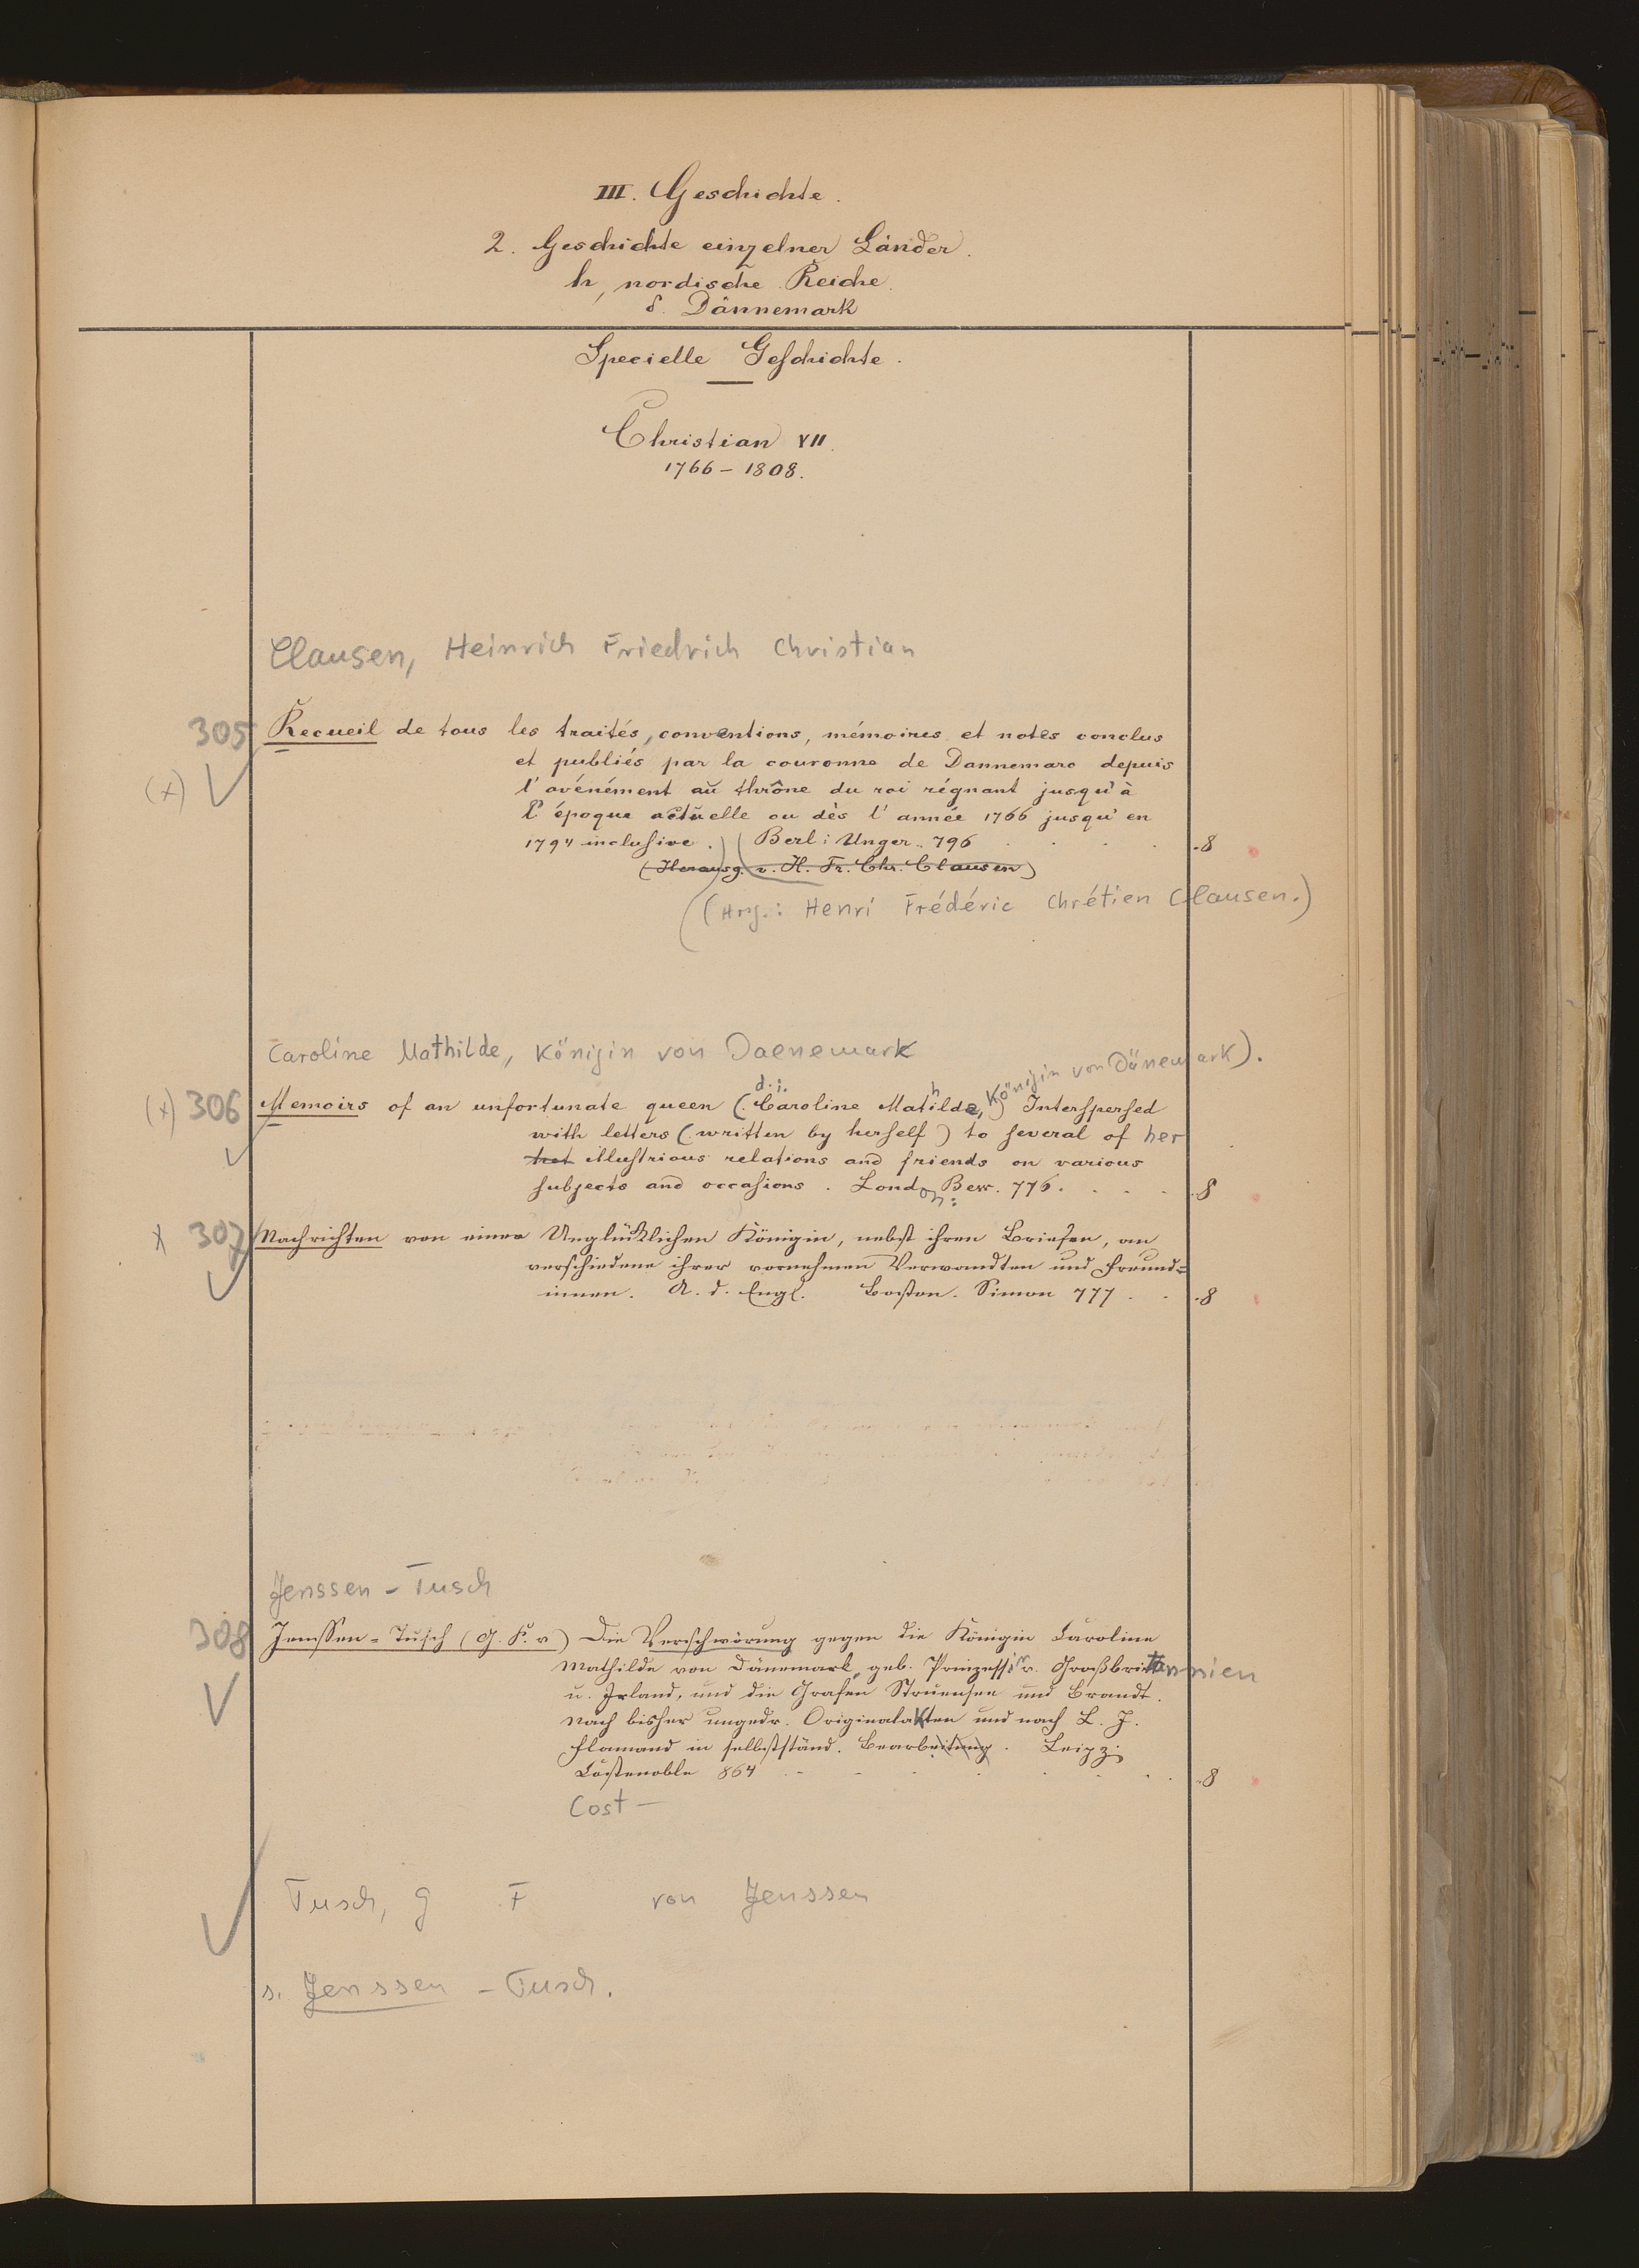 III. Geschichte.
2. Geschichte einzelner Länder.
h, nordische Reiche.
δ. Dännemark
Specielle Geschichte.
Christian VII.
1766 – 1808.
Clausen, Heinrich Friedrich Christian
305 Recueil de tous les traités, conventions, mémoires et notes conclus
(x) et publiés par la couronne de Dannemarc depuis
l'avénément au thrône du roi régnant jusqu'à
l'époque actuelle ou dès l'année 1766 jusqu'en
1794 inclusive.) (Berl: Unger. 796 . . . . 8
(Herausg. v. H. Fr. Chr. Clausen)
(Hrg.: Henri Frédéric Chrétien Clausen.)
Caroline Mathilde, Königin von Daenemark
d. i. h Königin von Dänemark).
(x) 306 Memoirs of an unfortunate queen (Caroline Matilde,) Interspersed
with letters (written by herself) to several of her
het illustrious relations and friends on various
subjects and occasions. London: Bew. 776. . . . 8
x 307 Nachrichten von einer Unglücklichen Königin, nebst ihren Briefen, an
verschiedene ihrer vornehmen Verwandten und Freund=
innen. A. d. Engl. Boston. Simon 777 . . . 8
Jenssen - Tusch
308 Jenssen = Tusch (G. F. v) Die Verschwörung gegen die Königin Caroline
Mathilde von Dänemark, geb. Prinzessin v. Großbritannien
u. Irland, und die Grafen Struensee und Brandt.
Nach bisher ungedr. Originalakten und nach L. J.
Flamand in selbstständ. Bearbeitung. Leipz:
Costenoble 864 . . . . . 8
Cost –
Tusch, G F von Jenssen
s. Jenssen - Tusch.